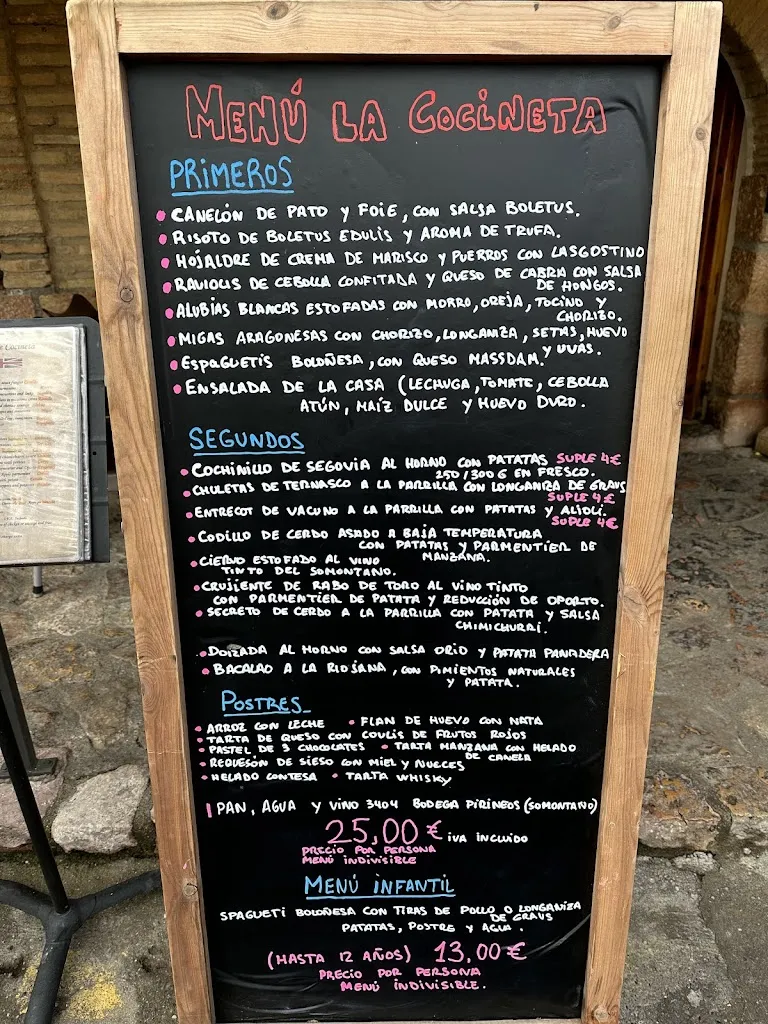 MENÚ LA COCINETA
PRIMEROS
CANELÓN DE PATO Y FOIE, CON SALSA BOLETUS.
RISOTO DE BOLETUS EDULIS Y AROMA DE TRUFA.
HOJALDRE DE CREMA DE MARISCO Y PUERROS CON LASGOSTINO
RAVIOLIS DE CEBOLLA CONFITADA Y QUESO DE CABRA CON SALSA
DE HONGOS.
ALUBIAS BLANCAS ESTOFADAS CON MORRO, OREJA, TOCINO Y
CHORIZO.
MIGAS ARAGONESAS CON CHORIZO, LONGANZA, SETAS, HUEVO
Y UVAS.
ESPAGUETIS BOLOÑESA, CON QUESO MASSDAM.
ENSALADA DE LA CASA (LECHUGA, TOMATE, CEBOLLA
ATÚN, MAÍZ DULCE Y HUEVO DURO.
SEGUNDOS
COCHINILLO DE SEGOVIA AL HORNO CON PATATAS SUPLE 4€
250/300G EN FRESCO.
CHULETAS DE TERNASCO A LA PARRILLA CON LONGANIZA DE GRAUS
SUPLE 4€
ENTRECOT DE VACUNO A LA PARRILLA CON PATATAS Y ALIOLI.
SUPLE 4€
CODILLO DE CERDO ASADO A BAJA TEMPERATURA
CON PATATAS Y PARMENTIER DE
MANZANA.
CIERVO ESTOFADO AL VINO
TINTO DEL SOMONTANO.
CRUJIENTE DE RABO DE TORO AL VINO TINTO
CON PARMENTIER DE PATATA Y REDUCCIÓN DE OPORTO.
SECRETO DE CERDO A LA PARRILLA CON PATATA Y SALSA
CHIMICHURRI.
DORADA AL HORNO CON SALSA ORIO Y PATATA PANADERA
BACALAO A LA RIOJANA, CON PIMIENTOS NATURALES
Y PATATA.
POSTRES
ARROZ CON LECHE • FLAN DE HUEVO CON NATA
TARTA DE QUESO CON COULIS DE FRUTOS ROJOS
PASTEL DE 3 CHOCOLATES • TARTA MANZANA CON HELADO
DE CANELA
REQUESÓN DE SIESO CON MIEL Y NUECES
HELADO CONTESA • TARTA WHISKY
PAN, AGUA Y VINO 3404 BODEGA PIRINEOS (SOMONTANO)
25,00 € IVA INCLUIDO
PRECIO POR PERSONA
MENÚ INDIVISIBLE
MENÚ INFANTIL
SPAGUETI BOLOÑESA CON TIRAS DE POLLO O LONGANIZA
DE GRAUS
PATATAS, POSTRE Y AGUA.
(HASTA 12 AÑOS) 13,00 €
PRECIO POR PERSONA
MENÚ INDIVISIBLE.